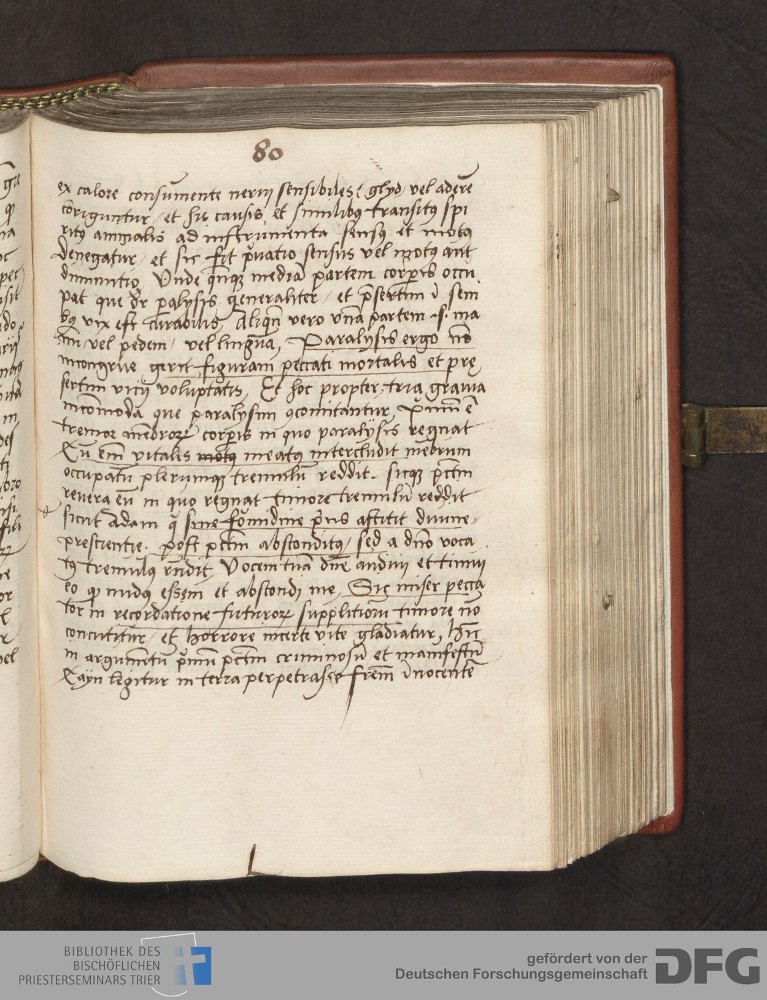 80
ex calore consumente nervi sensibiles et glyd vel adere
coriguntur / et his causis et similibus transitus spi
ritus animalis ad instrumenta sensus et motus
denegatur / et sic fit pvatio sensus vel motus aut
diminutio, Unde qnqz media partem corporis occu
pat que dr palysis generaliter / et psertim i sem
bus vix est curabilis, Aliqn vero una partem .s. ma
nu vel pedem / vel lingua, Paralysis ergo no
incongrue gerit figuram peccati mortalis et pre
sertim vicij voluptatis, Et hoc propter tria gravia
incomoda que paralysim 9comitantur, Primu e
tremor mebror corporis in quo paralysis regnat
Cu em vitalis motus meatus intercludit mebrum
occupatu plerumqz tremulu reddit. sicqz pctm
revera eu in quo regnat timore tremulu reddit
sicut Adam q sine formidine prius astitit divine
prescientie. post pctm absconditus / sed a dno voca
tus tremulus rndit, Vocem tua dne audivi et timui
eo q nudus essem et abscondi me, Sic miser pecca
tor in recordatione futuror supplitioru timore no
concutitur / et horrore incerte vite gladiatur, hinc
in argumentu primu pctm criminosu et manifestu
Cayn legitur in terra perpetrasse frem inocente
go
BIBLIOTHEK DES
BISCHÖFLICHEN
PRIESTERSEMINARS TRIER
gefördert von der
Deutschen Forschungsgemeinschaft
DFG